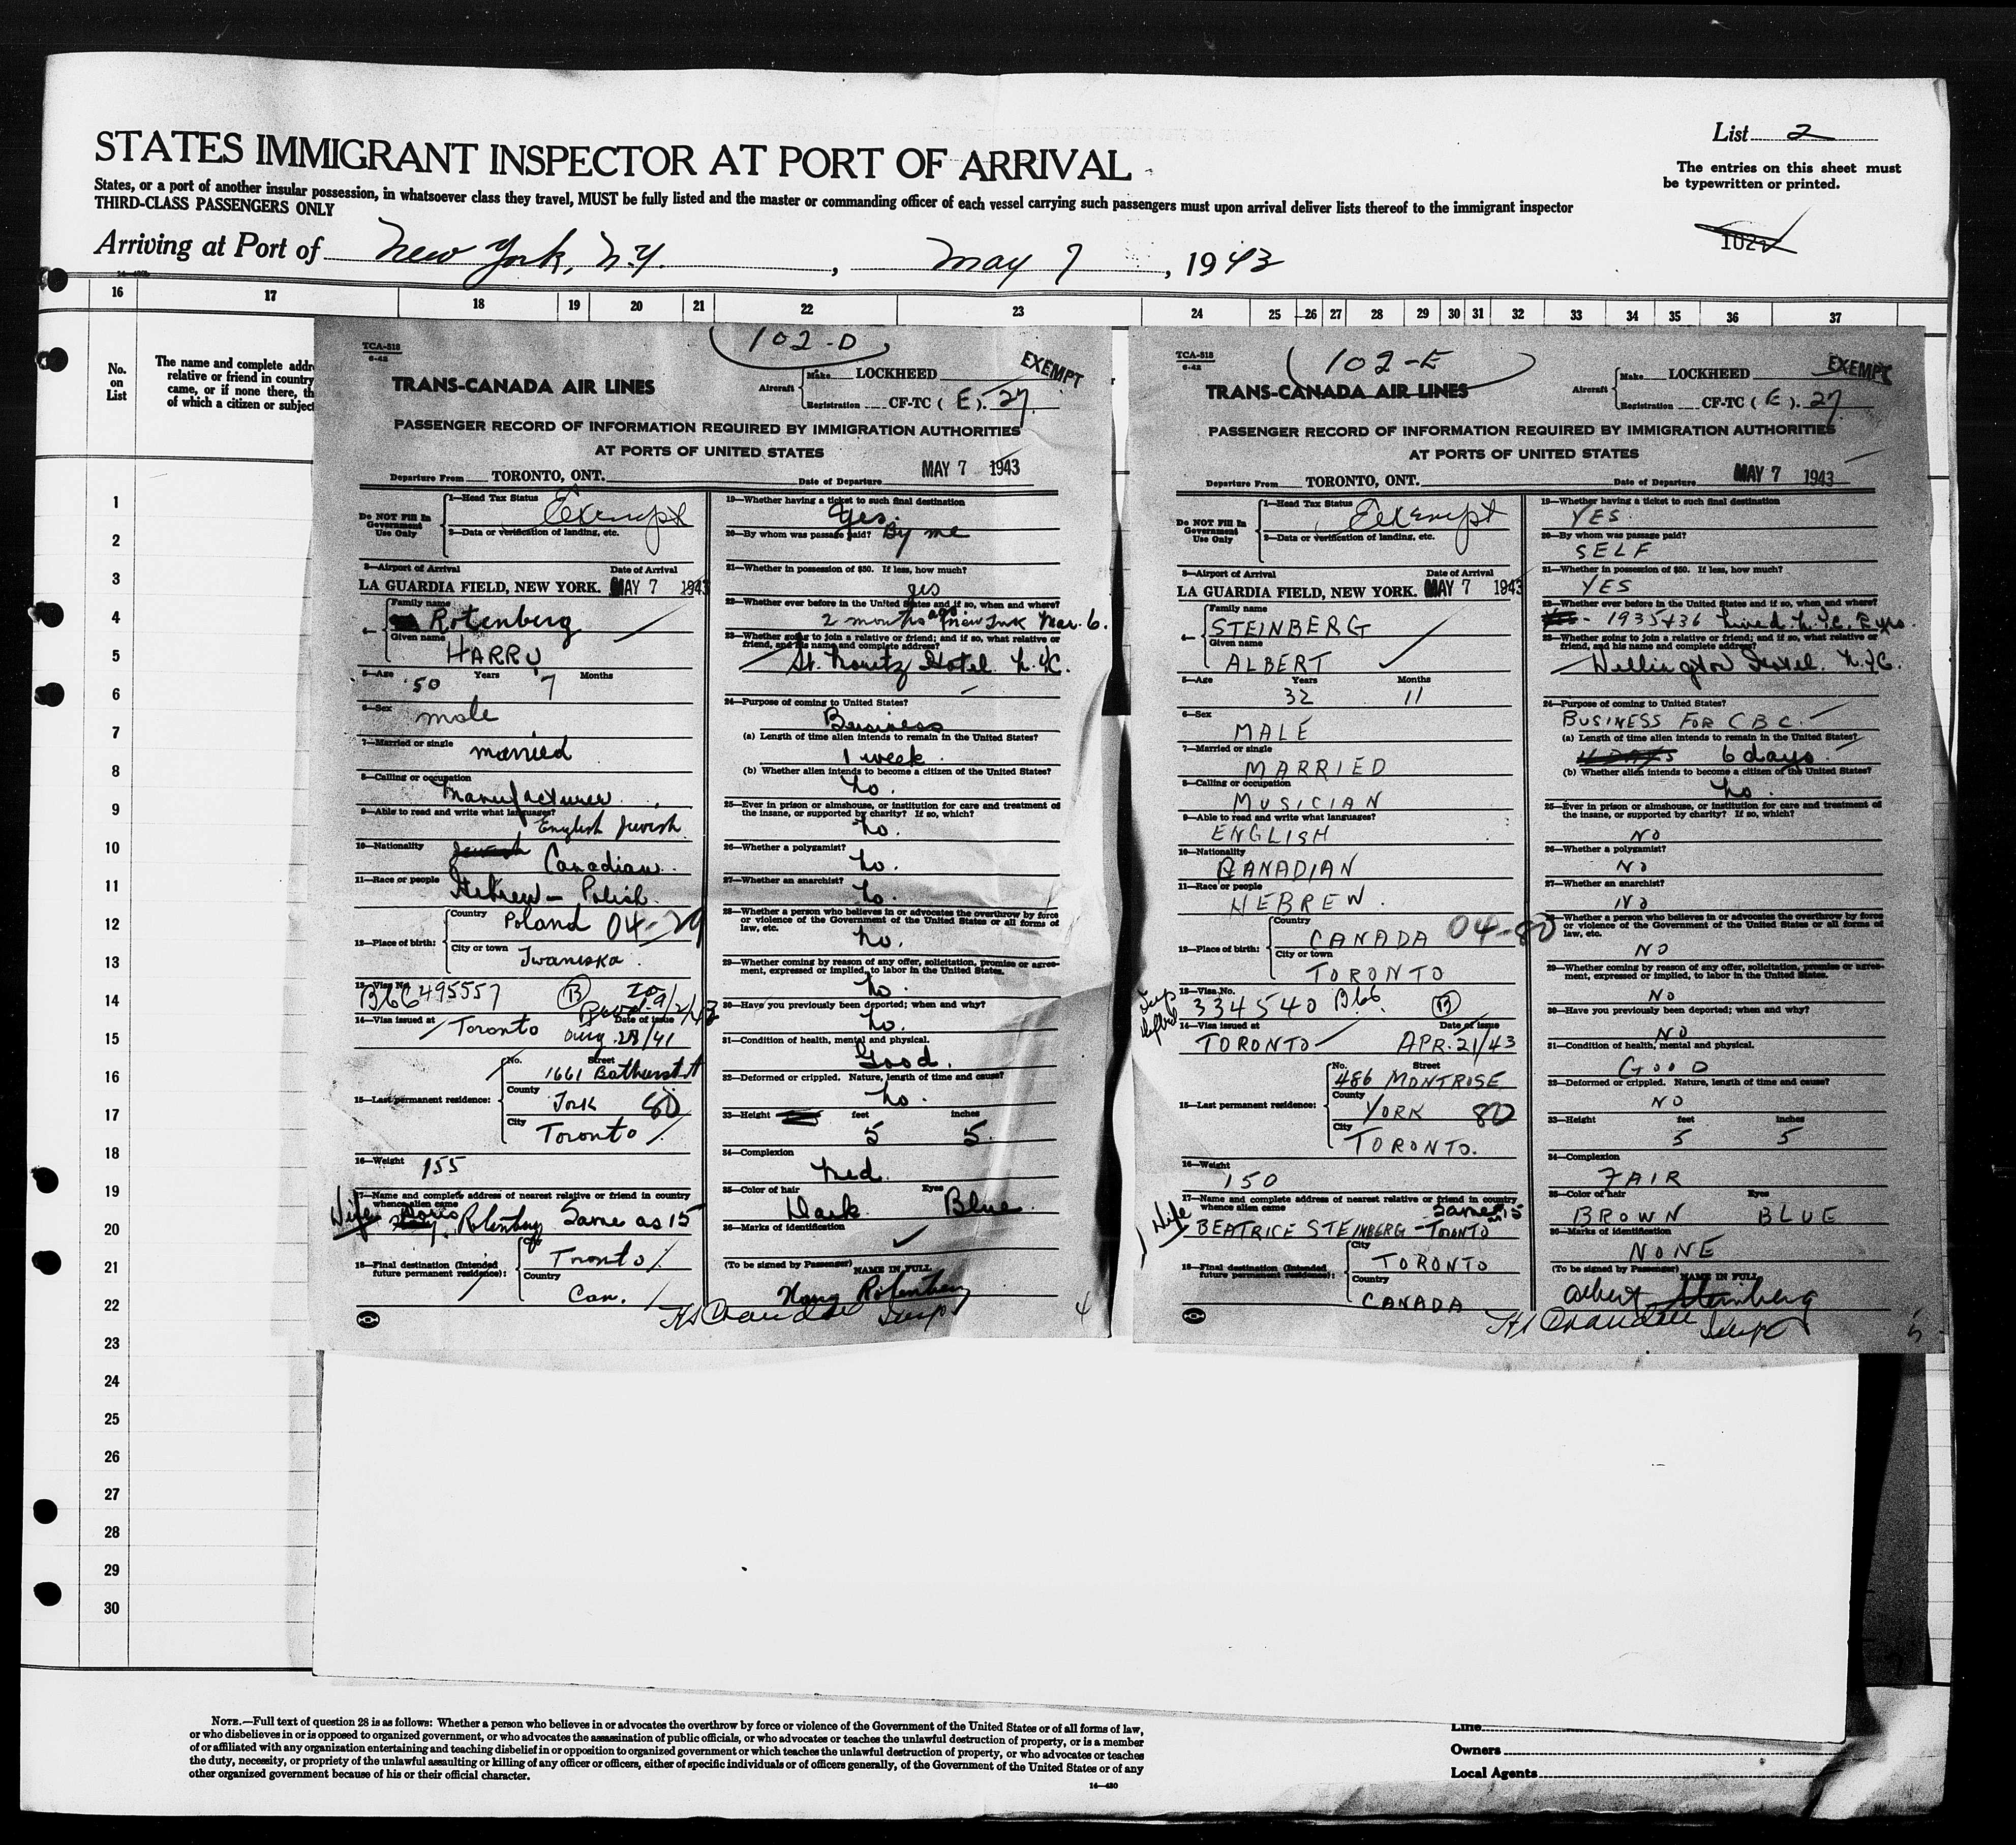 List 2
STATES IMMIGRANT INSPECTOR AT PORT OF ARRIVAL
The entries on this sheet must
be typewritten or printed.
States, or a port of another insular possession, in whatsoever class they travel, MUST be fully listed and the master or commanding officer of each vessel carrying such passengers must upon arrival deliver lists thereof to the immigrant inspector
THIRD-CLASS PASSENGERS ONLY
Arriving at Port of New York, N.Y. , May 7 , 1943
16 17 18 19 20 21 22 23 24 25 26 27 28 29 30 31 32 33 34 35 36 37
No.
on
List
The name and complete addr
relative or friend in country
came, or if none there, th
of which a citizen or subject
1
2
3
4
5
6
7
8
9
10
11
12
13
14
15
16
17
18
19
20
21
22
23
24
25
26
27
28
29
30
102-D
TCA-518
6-42
EXEMPT
TRANS-CANADA AIR LINES
Aircraft
Make LOCKHEED
Registration CF-TC ( E ). 27
PASSENGER RECORD OF INFORMATION REQUIRED BY IMMIGRATION AUTHORITIES
AT PORTS OF UNITED STATES
Departure From TORONTO, ONT. Date of Departure MAY 7 1943
Do NOT Fill In
Government
Use Only
1—Head Tax Status Exempt
2—Data or verification of landing, etc.
3—Airport of Arrival Date of Arrival
LA GUARDIA FIELD, NEW YORK. MAY 7 1943
4— Family name Rotenberg
Given name HARRY
5—Age 50 Years 7 Months
6—Sex male
7—Married or single married
8—Calling or occupation Manufacturer
9—Able to read and write what languages? English Jewish
10—Nationality Jewish Canadian
11—Race or people Hebrew - Polish
12—Place of birth: Country Poland 04-29
City or town Iwaniska
13—Visa No. B66495557 (B)
14—Visa issued at Toronto Date of issue Aug. 28/41
15—Last permanent residence: No. Street 1661 Bathurst St
County York 80
City Toronto
16—Weight 155
17—Name and complete address of nearest relative or friend in country
whence alien came
Wife Doris Rotenberg Same as 15
18—Final destination (Intended
future permanent residence): City Toronto
Country Can.
19—Whether having a ticket to such final destination
Yes.
20—By whom was passage paid? By me
21—Whether in possession of $50. If less, how much?
yes
22—Whether ever before in the United States and if so, when and where?
2 months ago New York Mar. 6.
23—Whether going to join a relative or friend; and if so, what relative or
friend, and his name and complete address?
St. Moritz Hotel N.Y.C.
24—Purpose of coming to United States?
Business
(a) Length of time alien intends to remain in the United States?
1 week
(b) Whether alien intends to become a citizen of the United States?
No.
25—Ever in prison or almshouse, or institution for care and treatment of
the insane, or supported by charity? If so, which?
No.
26—Whether a polygamist?
No.
27—Whether an anarchist?
No.
28—Whether a person who believes in or advocates the overthrow by force
or violence of the Government of the United States or all forms of
law, etc.
No.
29—Whether coming by reason of any offer, solicitation, promise or agree-
ment, expressed or implied, to labor in the United States.
No.
30—Have you previously been deported; when and why?
No.
31—Condition of health, mental and physical.
Good.
32—Deformed or crippled. Nature, length of time and cause?
No.
33—Height feet inches
5 5.
34—Complexion
Med.
35—Color of hair Eyes
Dark Blue
36—Marks of identification
(To be signed by Passenger) NAME IN FULL
Harry Rotenberg
HS Crandall Insp
4
102-E
TCA-518
6-42
EXEMPT
TRANS-CANADA AIR LINES
Aircraft
Make LOCKHEED
Registration CF-TC ( E ). 27
PASSENGER RECORD OF INFORMATION REQUIRED BY IMMIGRATION AUTHORITIES
AT PORTS OF UNITED STATES
Departure From TORONTO, ONT. Date of Departure MAY 7 1943
Do NOT Fill In
Government
Use Only
1—Head Tax Status Exempt
2—Data or verification of landing, etc.
3—Airport of Arrival Date of Arrival
LA GUARDIA FIELD, NEW YORK. MAY 7 1943
4— Family name STEINBERG
Given name ALBERT
5—Age Years Months
32 11
6—Sex MALE
7—Married or single MARRIED
8—Calling or occupation MUSICIAN
9—Able to read and write what languages? ENGLISH
10—Nationality CANADIAN
11—Race or people HEBREW.
12—Place of birth: Country CANADA 04-80
City or town TORONTO
13—Visa No. 334540 B66 (B)
14—Visa issued at TORONTO Date of issue APR. 21/43
15—Last permanent residence: No. Street 486 MONTROSE
County YORK 80
City TORONTO.
16—Weight 150
17—Name and complete address of nearest relative or friend in country
whence alien came Same as 15
Wife BEATRICE STEINBERG - TORONTO
18—Final destination (Intended
future permanent residence): City TORONTO
Country CANADA
19—Whether having a ticket to such final destination
YES.
20—By whom was passage paid?
SELF
21—Whether in possession of $50. If less, how much?
YES
22—Whether ever before in the United States and if so, when and where?
Yes - 1935 + 36 Lived N.Y.C. 2 yrs.
23—Whether going to join a relative or friend; and if so, what relative or
friend, and his name and complete address?
Wellington Hotel. N.Y.C.
24—Purpose of coming to United States?
BUSINESS FOR CBC.
(a) Length of time alien intends to remain in the United States?
6 days
(b) Whether alien intends to become a citizen of the United States?
No.
25—Ever in prison or almshouse, or institution for care and treatment of
the insane, or supported by charity? If so, which?
NO
26—Whether a polygamist?
NO
27—Whether an anarchist?
NO
28—Whether a person who believes in or advocates the overthrow by force
or violence of the Government of the United States or all forms of
law, etc.
NO
29—Whether coming by reason of any offer, solicitation, promise or agree-
ment, expressed or implied, to labor in the United States.
NO
30—Have you previously been deported; when and why?
NO
31—Condition of health, mental and physical.
GOOD
32—Deformed or crippled. Nature, length of time and cause?
NO
33—Height feet inches
5 5
34—Complexion
FAIR
35—Color of hair Eyes
BROWN BLUE
36—Marks of identification
NONE
(To be signed by Passenger) NAME IN FULL
Albert Steinberg
HS Crandall Insp
5
NOTE.—Full text of question 28 is as follows: Whether a person who believes in or advocates the overthrow by force or violence of the Government of the United States or of all forms of law,
or who disbelieves in or is opposed to organized government, or who advocates the assassination of public officials, or who advocates or teaches the unlawful destruction of property, or is a member
of or affiliated with any organization entertaining and teaching disbelief in or opposition to organized government or which teaches the unlawful destruction of property, or who advocates or teaches
the duty, necessity, or propriety of the unlawful assaulting or killing of any officer or officers, either of specific individuals or of officers generally, of the Government of the United States or of any
other organized government because of his or their official character.
14—430
Line
Owners
Local Agents